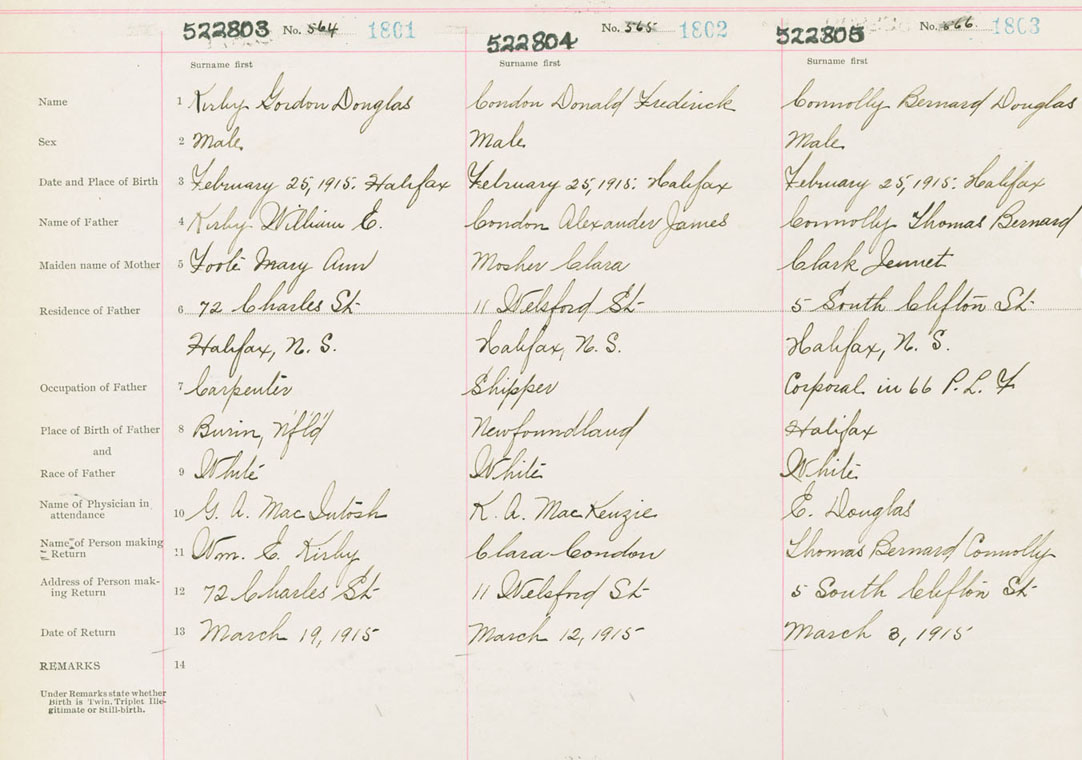 522803 No. 564 1801 522804 No. 565 1802 522805 No. 566 1803
Surname first Surname first Surname first
Name 1 Kirby Gordon Douglas Condon Donald Frederick Connolly Bernard Douglas
Sex 2 Male Male Male
Date and Place of Birth 3 February 25, 1915. Halifax February 25, 1915. Halifax February 25, 1915. Halifax
Name of Father 4 Kirby William E. Condon Alexander James Connolly Thomas Bernard
Maiden name of Mother 5 Foote Mary Ann Mosher Clara Clark Jennet
Residence of Father 6 72 Charles St 11 Welsford St 5 South Clifton St
Halifax, N. S. Halifax, N. S. Halifax, N. S.
Occupation of Father 7 Carpenter Shipper Corporal in 66 P. L. F
Place of Birth of Father 8 Burin, N'f'l'd Newfoundland Halifax
and
Race of Father 9 White White White
Name of Physician in
attendance 10 G. A. MacIntosh K. A. MacKenzie E. Douglas
Name of Person making
Return 11 Wm. E. Kirby Clara Condon Thomas Bernard Connolly
Address of Person mak-
ing Return 12 72 Charles St 11 Welsford St 5 South Clifton St
Date of Return 13 March 19, 1915 March 12, 1915 March 3, 1915
REMARKS 14
Under Remarks state whether
Birth is Twin, Triplet Ille-
gitimate or Still-birth.